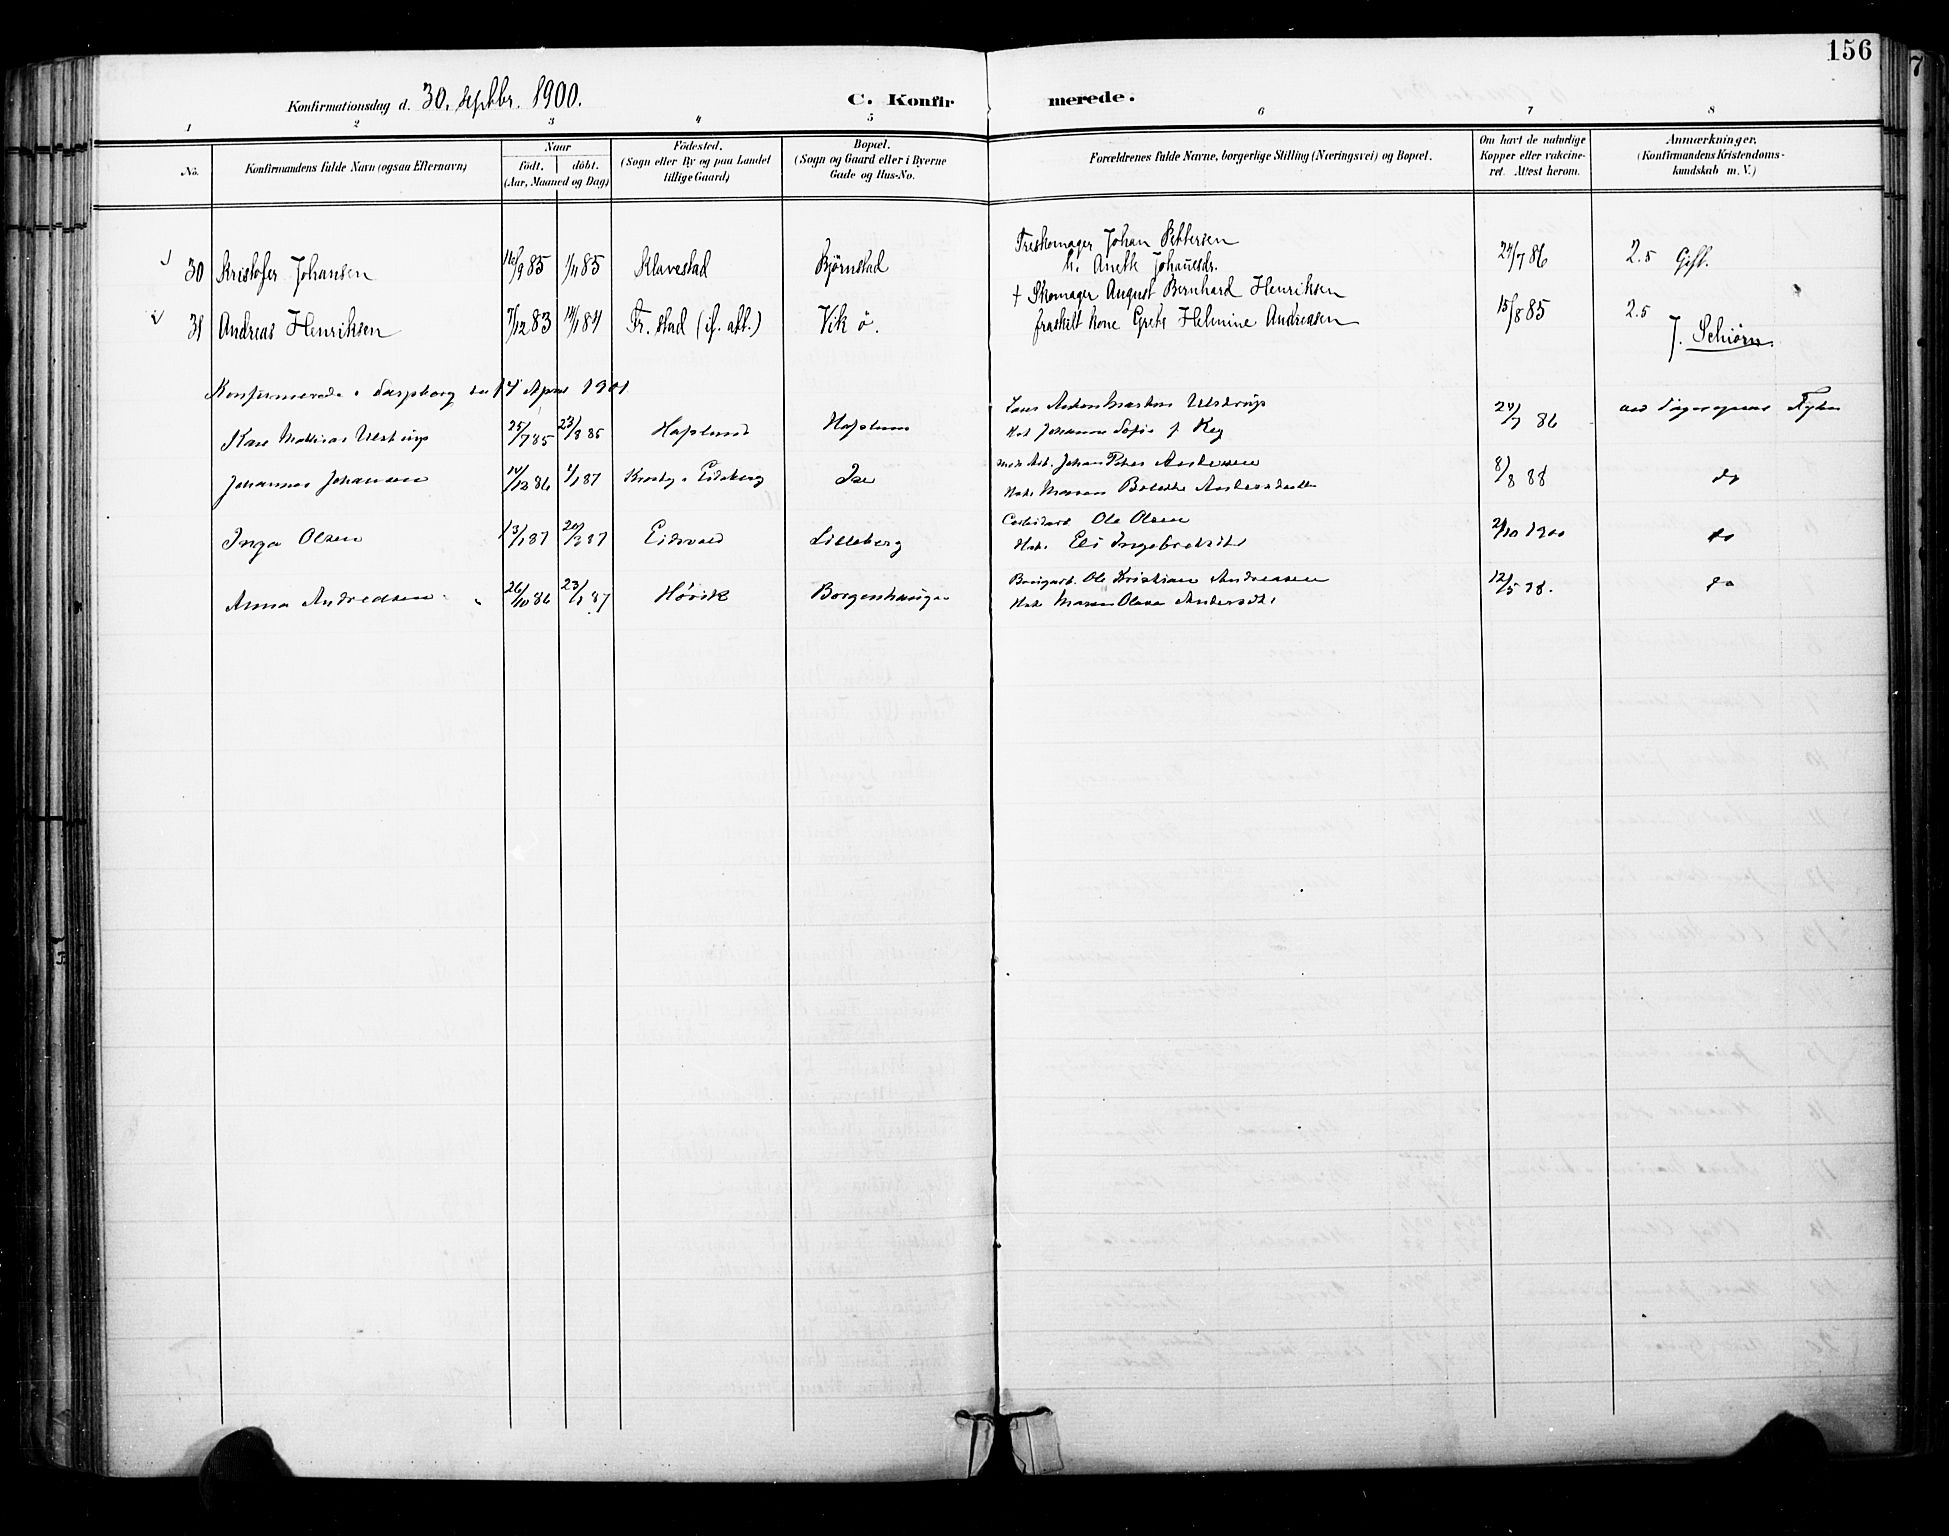 156
Konfirmationsdag d. 30. Septbr. 1900. C. Konfirmerede.
1 2 3 4 5 6 7 8
No. Konfirmandens fulde Navn (ogsaa Efternavn) Naar födt. döbt. (Aar, Maaned og Dag) Födested. (Sogn eller By og paa Landet tillige Gaard) Bopæl. (Sogn og Gaard eller i Byerne Gade og Hus-No. Forældrenes fulde Navne, borgerlige Stilling (Næringsvei) og Bopæl. Om havt de naturlige Kopper eller vaccineret. Attest herom. Anmærkninger. (Konfirmandens Kristendomskundskab m. V.)
30 Kristofer Johansen 16/9 85 1/11 85 Klavestad Bjørnstad Træskomager Johan Pettersen 24/7 86 2.5 Gift.
h. Anette Johannesdr.
31 Andreas Henriksen 7/12 83 14/1 84 Fr.stad (if. att.) Vik ö. † Skomager August Bernhard Henriksen 15/8 85 2.5
fraskilt kone Grete Helmine Andreasen
J. Schiörn.
Konfirmerede i Sarpsborg den 14 April 1901
Karl Mathias Ulstrup 25/7 85 23/8 85 Hafslund Hafslund Lars Anton Martin Ulstrup 24/7 86
Johanne Sofie f. Rey
Johannes Johansen 14/12 86 1/1 87 Eidsberg Ise Johan Peter Andersen 8/8 88 do
Maren Bolette Andersdatter
Inga Olsen 13/1 87 20/3 87 Eidsvold Lilleberg Ole Olsen 2/10 1900 do
Eli Ingebretsdtr
Anna Andreasen 26/10 86 23/1 87 Høvik Borgenhaugen Ole Kristian Andreasen 12/5 98. do
Maren Olava Andersdtr